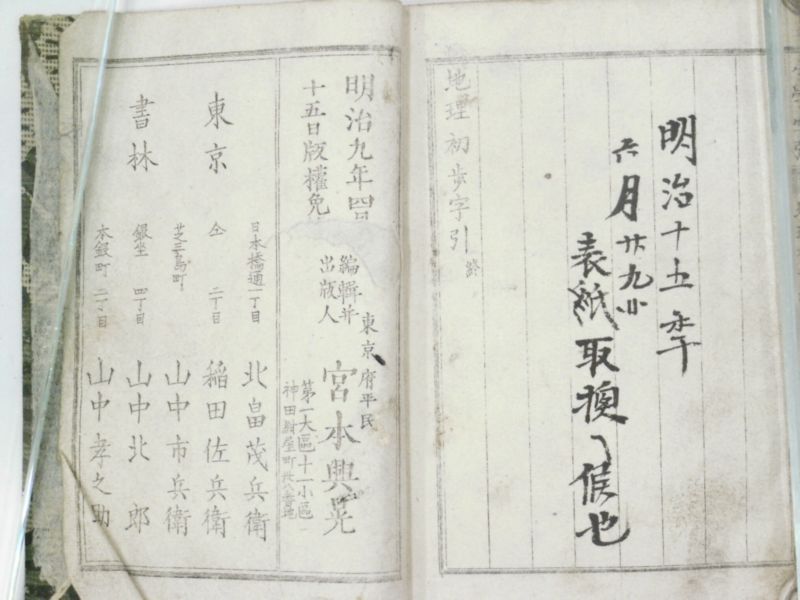 明治十五年
六月廿九日
表紙取換候也
地理初歩字引 終
明治九年四月
十五日版權免
編輯并
出版人
東京府平民
宮木興晃
第一大區十一小區
神田紺屋町
東京
書林
日本橋通一丁目 北畠茂兵衛
仝 二丁目 稲田佐兵衛
芝三島町 山中市兵衛
銀坐四丁目 山中北郎
本銀町二丁目 山中孝之助